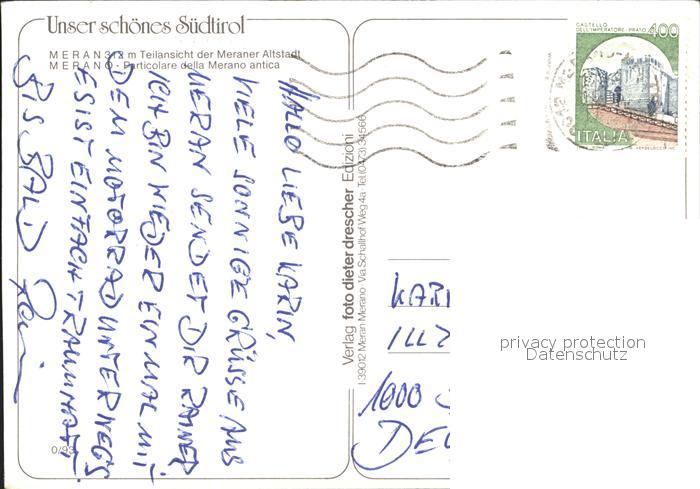 Unser schönes Südtirol
MERAN 312 m Teilansicht der Meraner Altstadt
MERANO - Particolare della Merano antica
HALLO LIEBE KARIN,
VIELE SONNIGE GRÜSSE AUS
MERAN SENDET DIR RAINER
ICH BIN WIEDER EINMAL MIT
DEM MOTORRAD UNTERWEGS
ES IST EINFACH TRAUMHAFT.
BIS BALD
0/93
Verlag foto dieter drescher Edizioni
I-39012 Meran Merano Via Schaffhof Weg 4a Tel.(0473) 34566
CASTELLO
DELL'IMPERATORE - PRATO
400
ITALIA
KARI
1000
DEU
privacy protection
Datenschutz